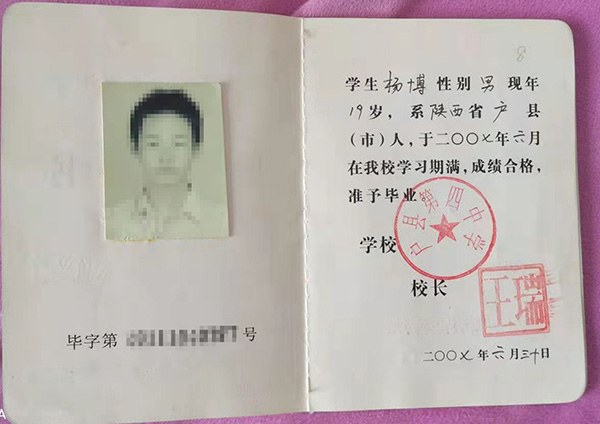 8
学生 杨博 性别 男 现年
19岁, 系 陕西省 户 县
(市)人, 于二〇〇七年六月
在我校学习期满, 成绩合格,
准予毕业
户县第四中学
学校
校长
王瑞
毕字第
号
二〇〇七年六月三十日
A